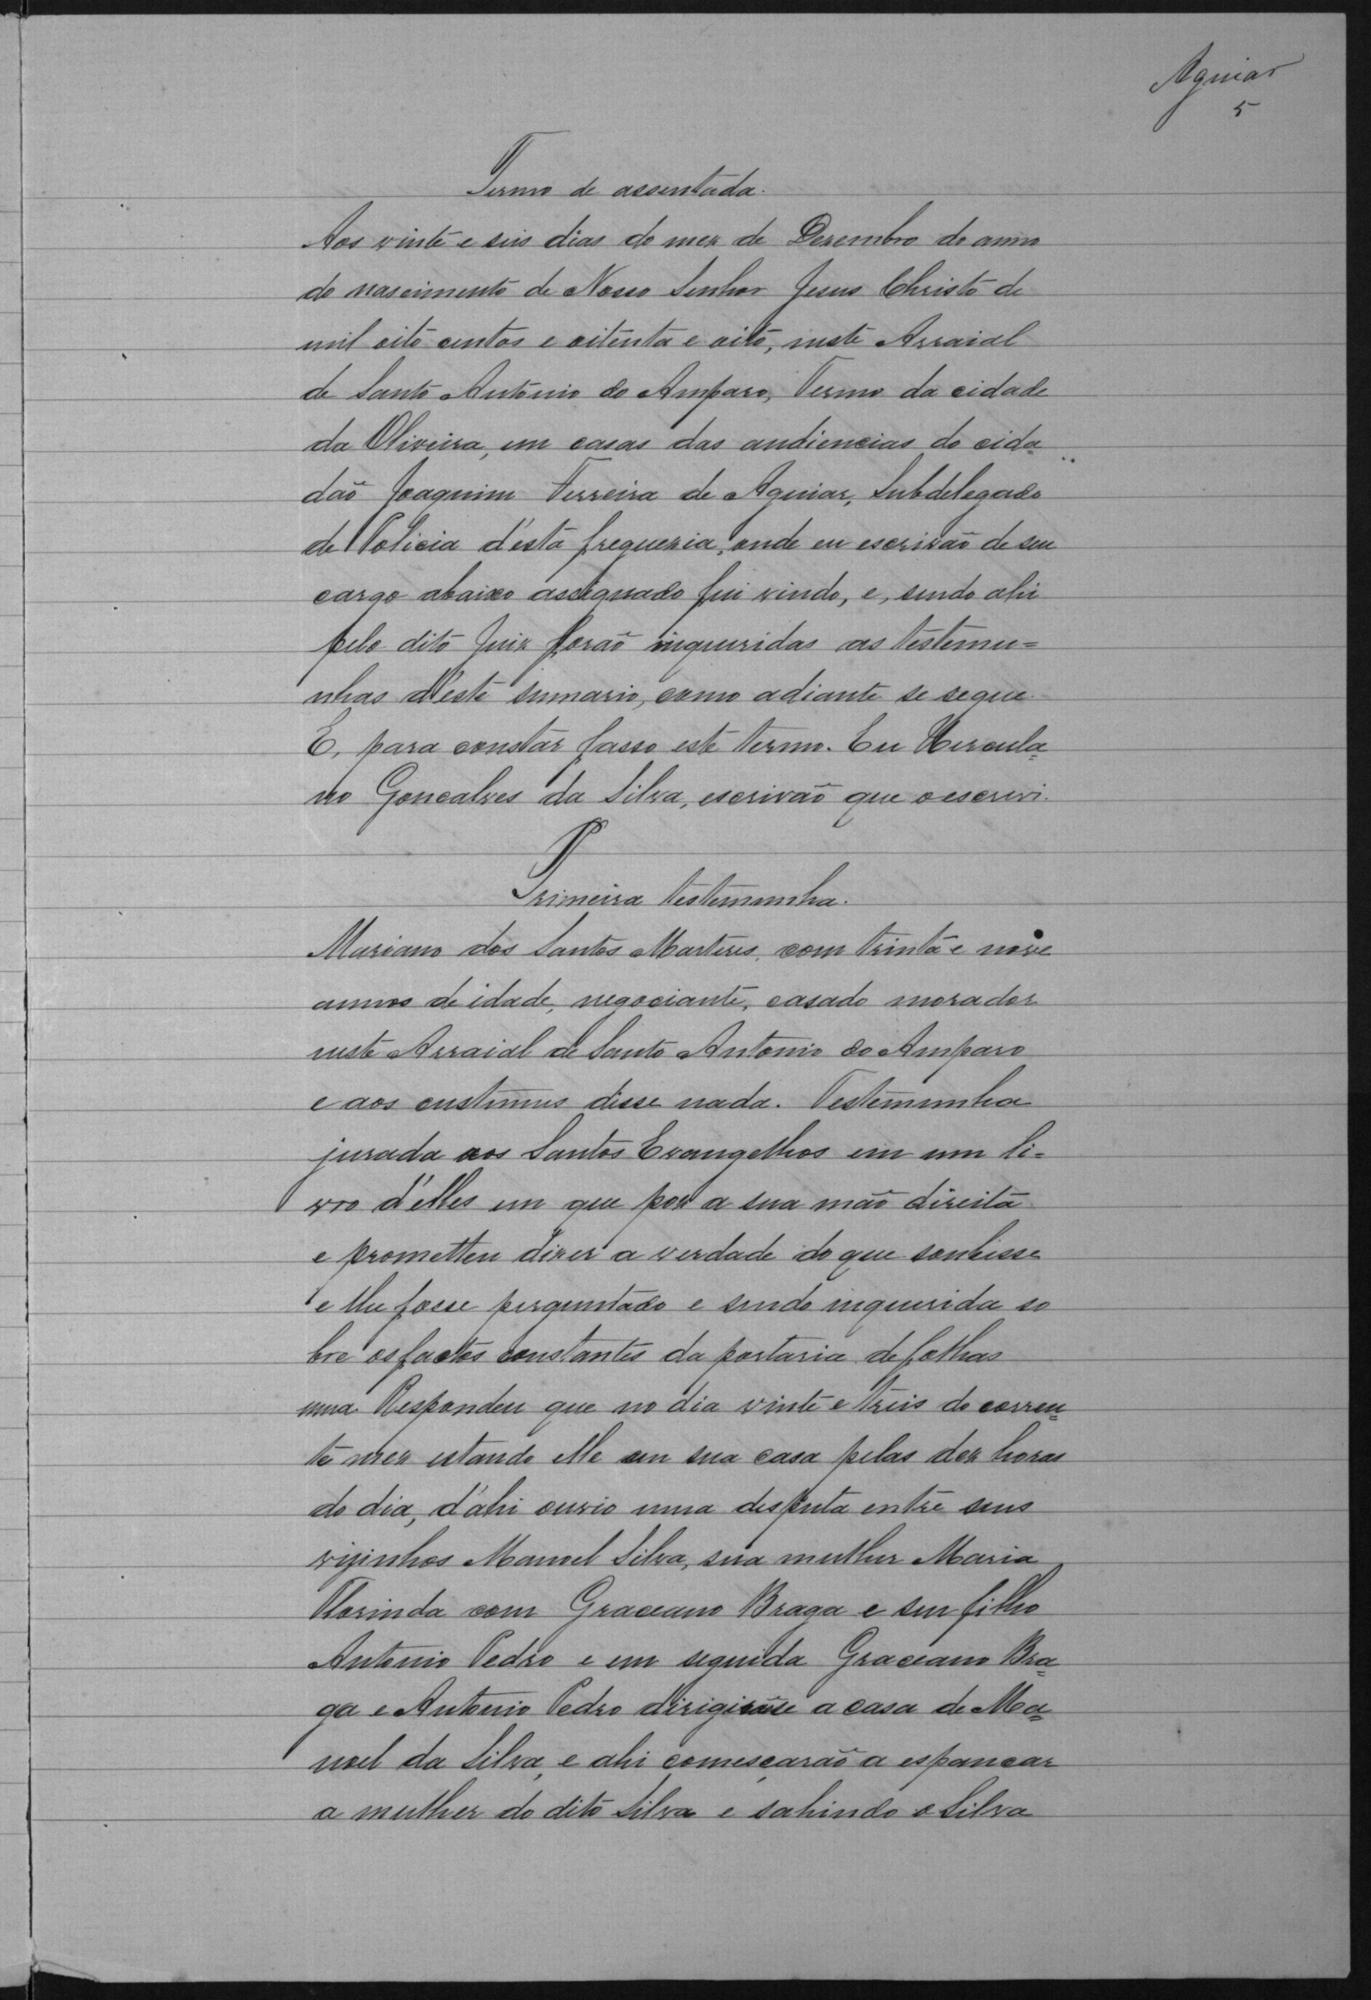 Aguiar
5
Termo de assentada.
Aos vinte e seis dias do mez de Dezembro do anno
do nascimento de Nosso Senhor Jesus Christo de
mil oito centos e oitenta e oito, neste Arraial
de Santo Antonio do Amparo, Termo da cidade
da Oliveira, em casas das audiencias do cida=
dão Joaquim Ferreira de Aguiar, Subdelegado
de Policia d'esta freguezia, onde eu escrivão de seu
cargo abaixo assignado fui vindo, e, sendo ahi
pelo dito Juiz forão inqueridas as testemu=
nhas d'este sumario, como adiante se segue.
E, para constar fasso este termo. Eu Hercula=
no Goncalves da Silva, escrivão que o escrevi.
Primeira testemunha.
Mariano dos Santos Marteres, com trinta e nove
annos de idade, negociante, casado morador
neste Arraial de Santo Antonio do Amparo
e aos custumes disse nada. Testemunha
jurada aos Santos Evangelhos em um li=
vro d'elles em que poz a sua mão direita
e prometteu dizer a verdade do que soubesse
e lhe fosse perguntado e sendo inquerida so
bre os factos constantes da portaria de folhas
uma. Respondeu que no dia vinte e treis do corren=
te mez estando elle em sua casa pelas dez horas
do dia, d'ahi ouvio uma desputa entre seus
visinhos Manoel Silva, sua mulher Maria
Florinda com Graceano Braga e seu filho
Antonio Pedro e em seguida Graceano Bra=
ga e Antonio Pedro dirigirãose a casa de Ma=
noel da Silva, e ahi comesçarão a espancar
a mulher do dito Silva e sahindo o Silva